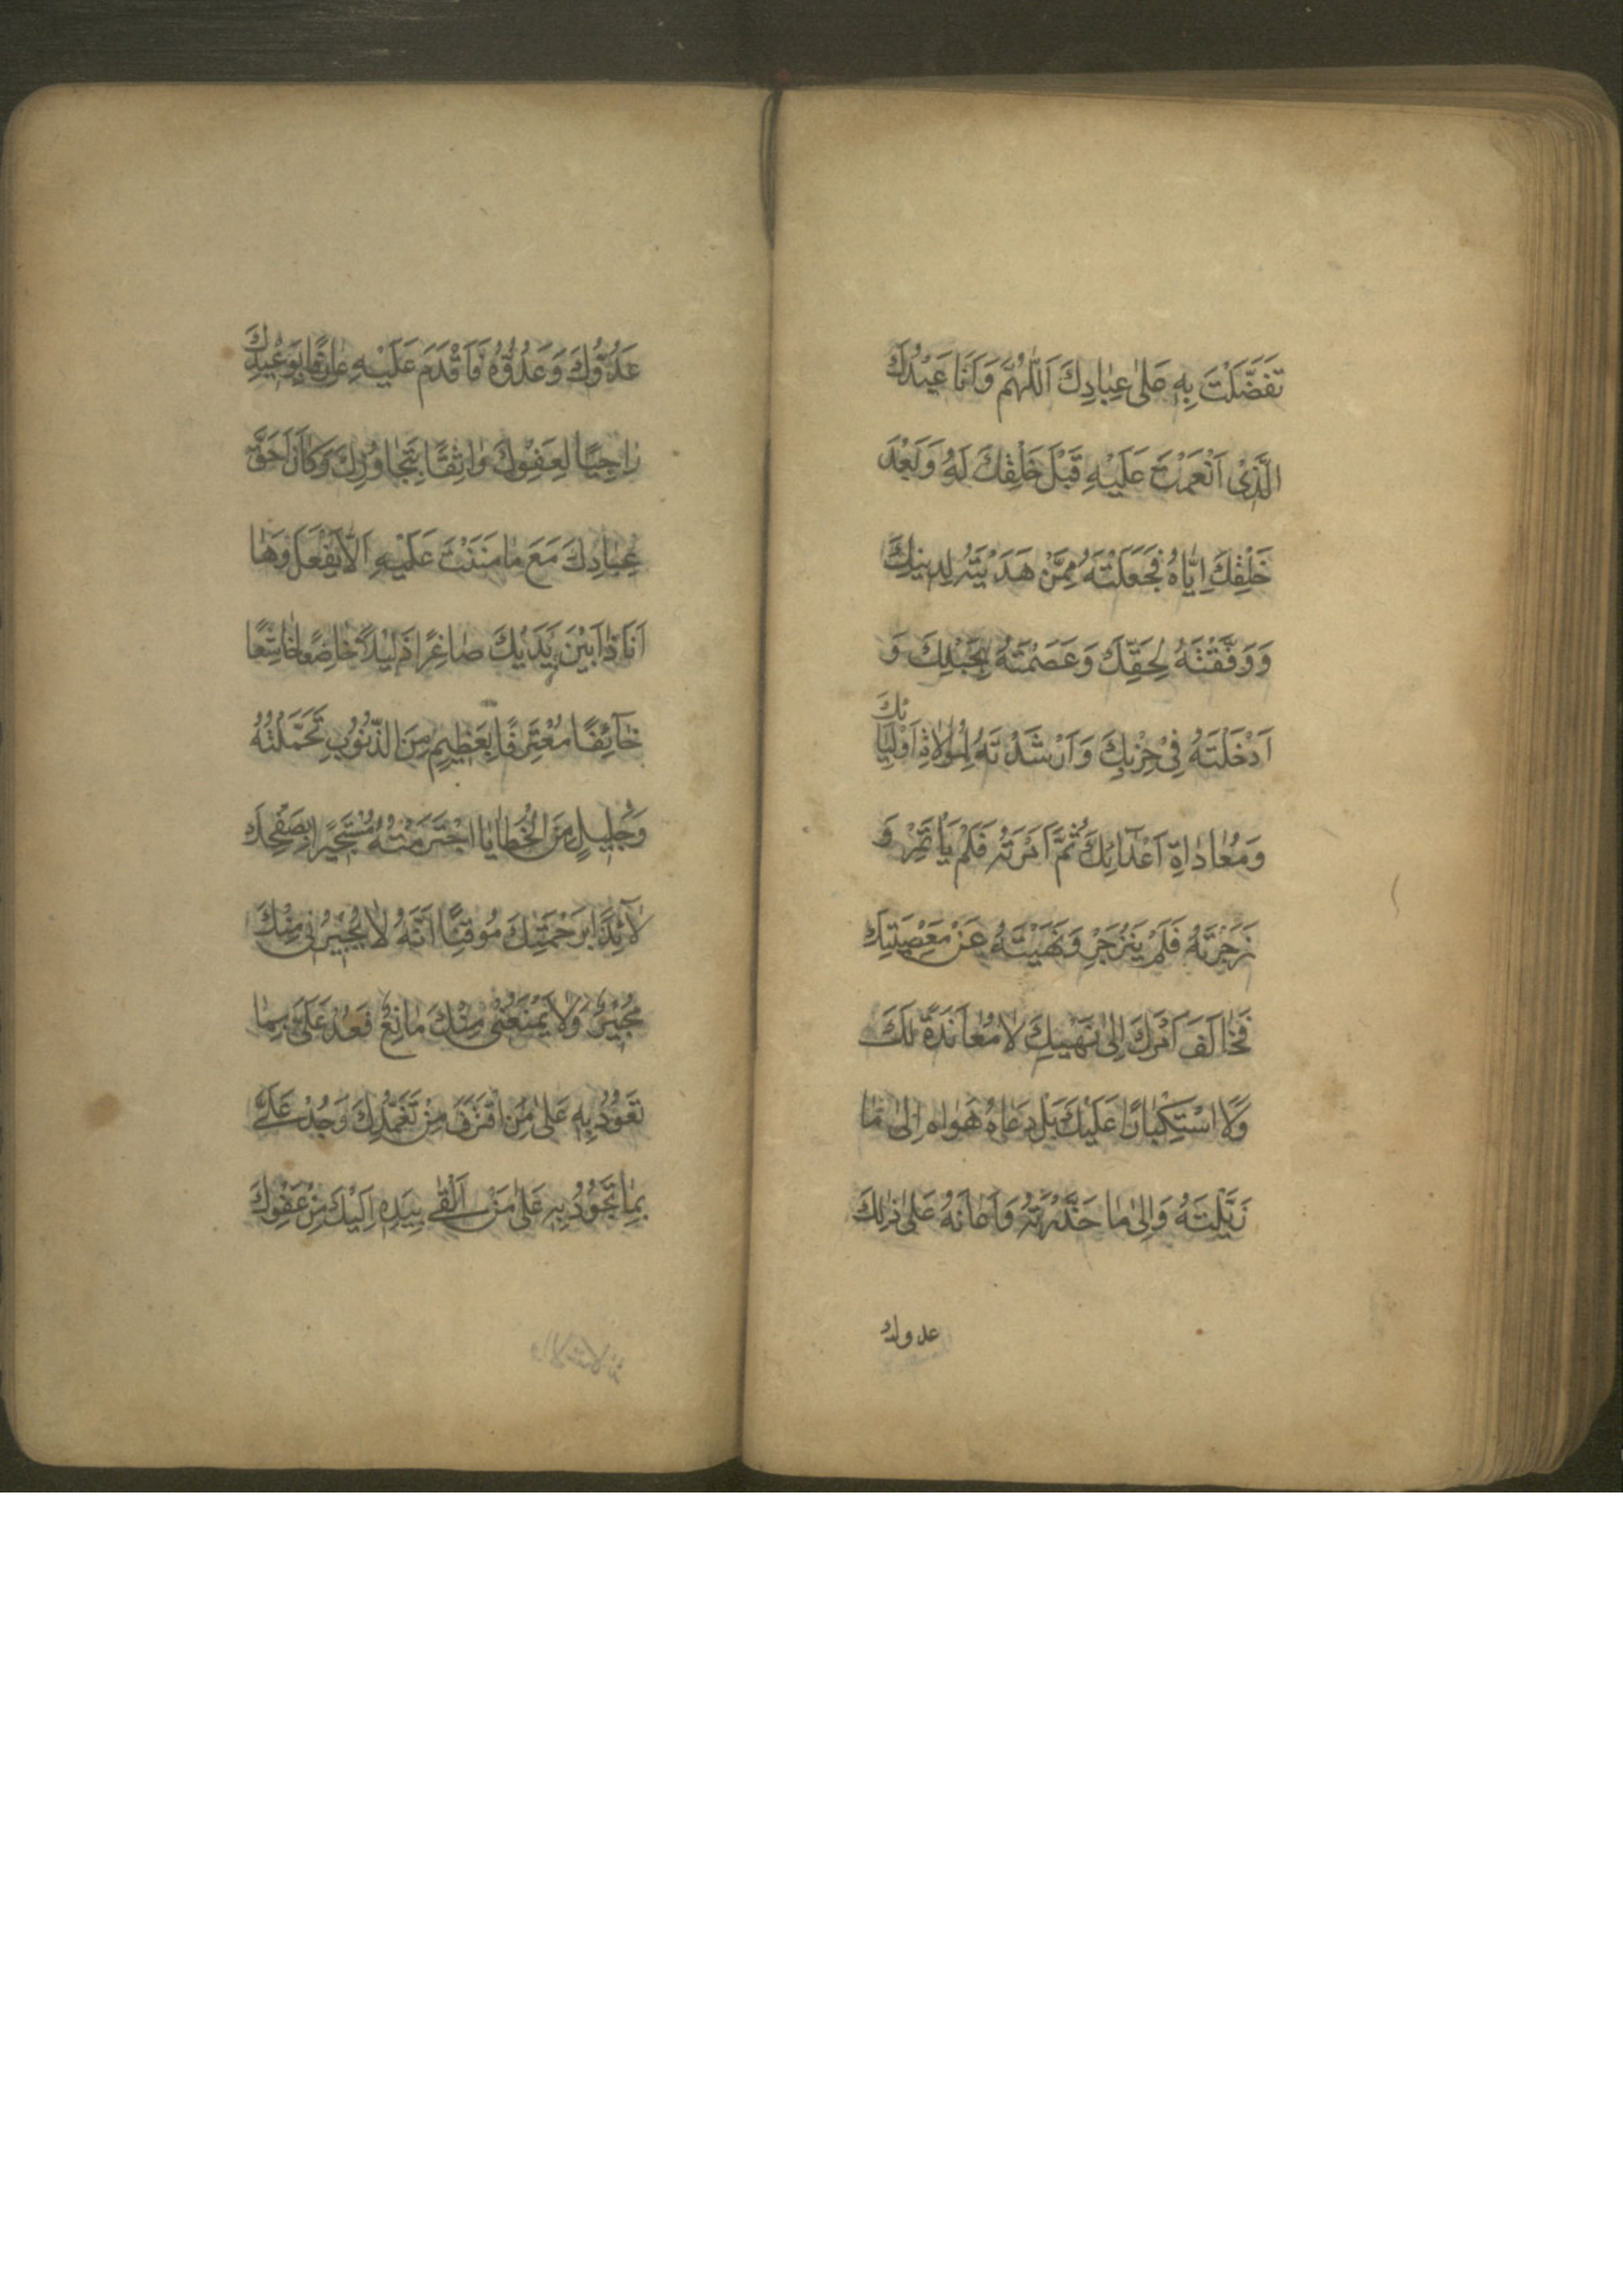 تَفَضَّلْتَ بِهِ عَلٰى عِبٰادِكَ اَللّٰهُمَّ وَاَنَا عَبْدُكَ
الَّذِىْ اَنْعَمْتَ عَلَيْهِ قَبْلَ خَلْقِكَ لَهُ وَبَعْدَ
خَلْقِكَ اِيّٰاهُ فَجَعَلْتَهُ مِمَّنْ هَدَيْتَهُ لِدِينِكَ
وَوَفَّقْتَهُ لِحَقِّكَ وَعَصَمْتَهُ بِحَبْلِكَ وَ
اَدْخَلْتَهُ فِىْ حِزْبِكَ وَاَرْشَدْتَهُ لِمُوٰالاةِ اَوْلِيٰائِكَ
وَمُعٰادٰاةِ اَعْدٰائِكَ ثُمَّ اَمَرْتَهُ فَلَمْ يَأْتَمِرْ وَ
زَجَرْتَهُ فَلَمْ يَنْزَجِرْ وَنَهَيْتَهُ عَنْ مَعْصِيَتِكَ
فَخٰالَفَ اَمْرَكَ اِلٰى نَهْيِكَ لٰا مُعٰانَدَةً لَكَ
وَلَا اسْتِكْبٰارًا عَلَيْكَ بَلْ دَعٰاهُ هَوٰاهُ اِلٰى مٰا
زَيَّلْتَهُ وَاِلٰى مٰا حَذَّرْتَهُ وَاَعٰانَهُ عَلٰى ذٰلِكَ
عدولك
عَدُوُّكَ وَعَدُوُّهُ فَاَقْدَمَ عَلَيْهِ عٰارِفًا بِوَعْيدِكَ
رٰاجِيًا لِعَفْوِكَ وٰاثِقًا بِتَجٰاوُزِكَ وَكٰانَ اَحَقَّ
عِبٰادِكَ مَعَ مٰا مَنَنْتَ عَلَيْهِ اَلّٰا يَفْعَلَ وَهٰا
اَنَا ذٰا بَيْنَ يَدَيْكَ صٰاغِرًا ذَلِيْلاً خٰاضِعًا خٰاشِعًا
خٰآئِفًا مُعْتَرِفًا بِعَظِيْمٍ مِنَ الذُّنُوْبِ تَحَمَّلْتُهُ
وَجَلِيلٍ مِنَ الْخَطٰايٰا اجْتَرَمْتُهُ مُسْتَجِيْرًا بِصَفْحِكَ
لٰآئِذًا بِرَحْمَتِكَ مُوقِنًا اَنَّهُ لٰا يُجِيْرُنِى مِنْكَ
مُجِيْرٌ وَلٰا يَمْنَعُنِى مِنْكَ مٰانِعٌ فَعُدْ عَلَىَّ بِمٰا
تَعُوْدُ بِهِ عَلٰى مَنِ اقْتَرَفَ مِنْ تَغَمُّدِكَ وَجُدْ عَلَىَّ
بِمٰا تَجُوْدُ بِهِ عَلٰى مَنْ اَلْقٰى بِيَدِهِ اِلَيْكَ مِنْ عَفْوِكَ